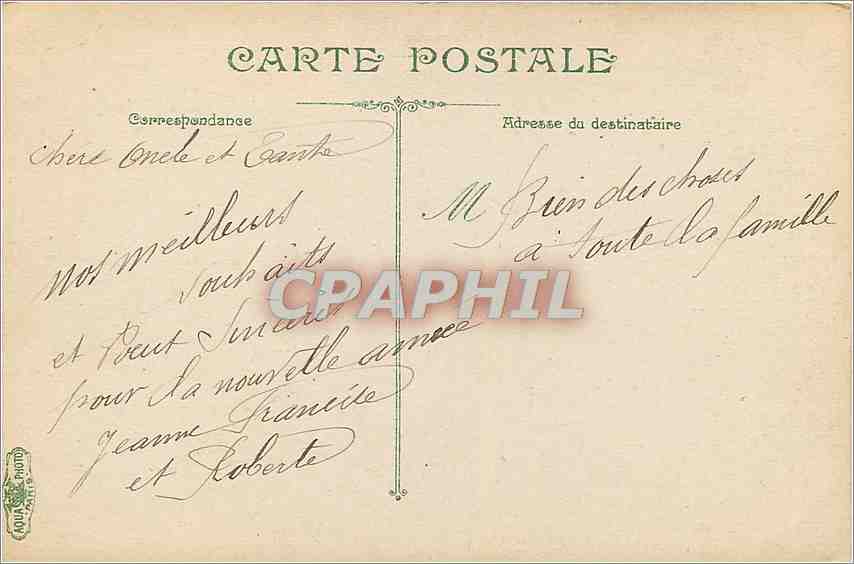 CARTE POSTALE
Correspondance
Adresse du destinataire
chers Oncle et Tante
nos meilleurs
souhaits
et Voeux Sincères
pour la nouvelle année
Jeanne Francise
et Roberte
M Bien des choses
à toute la famille
CPAPHIL
AQUA PHOTO
PARIS